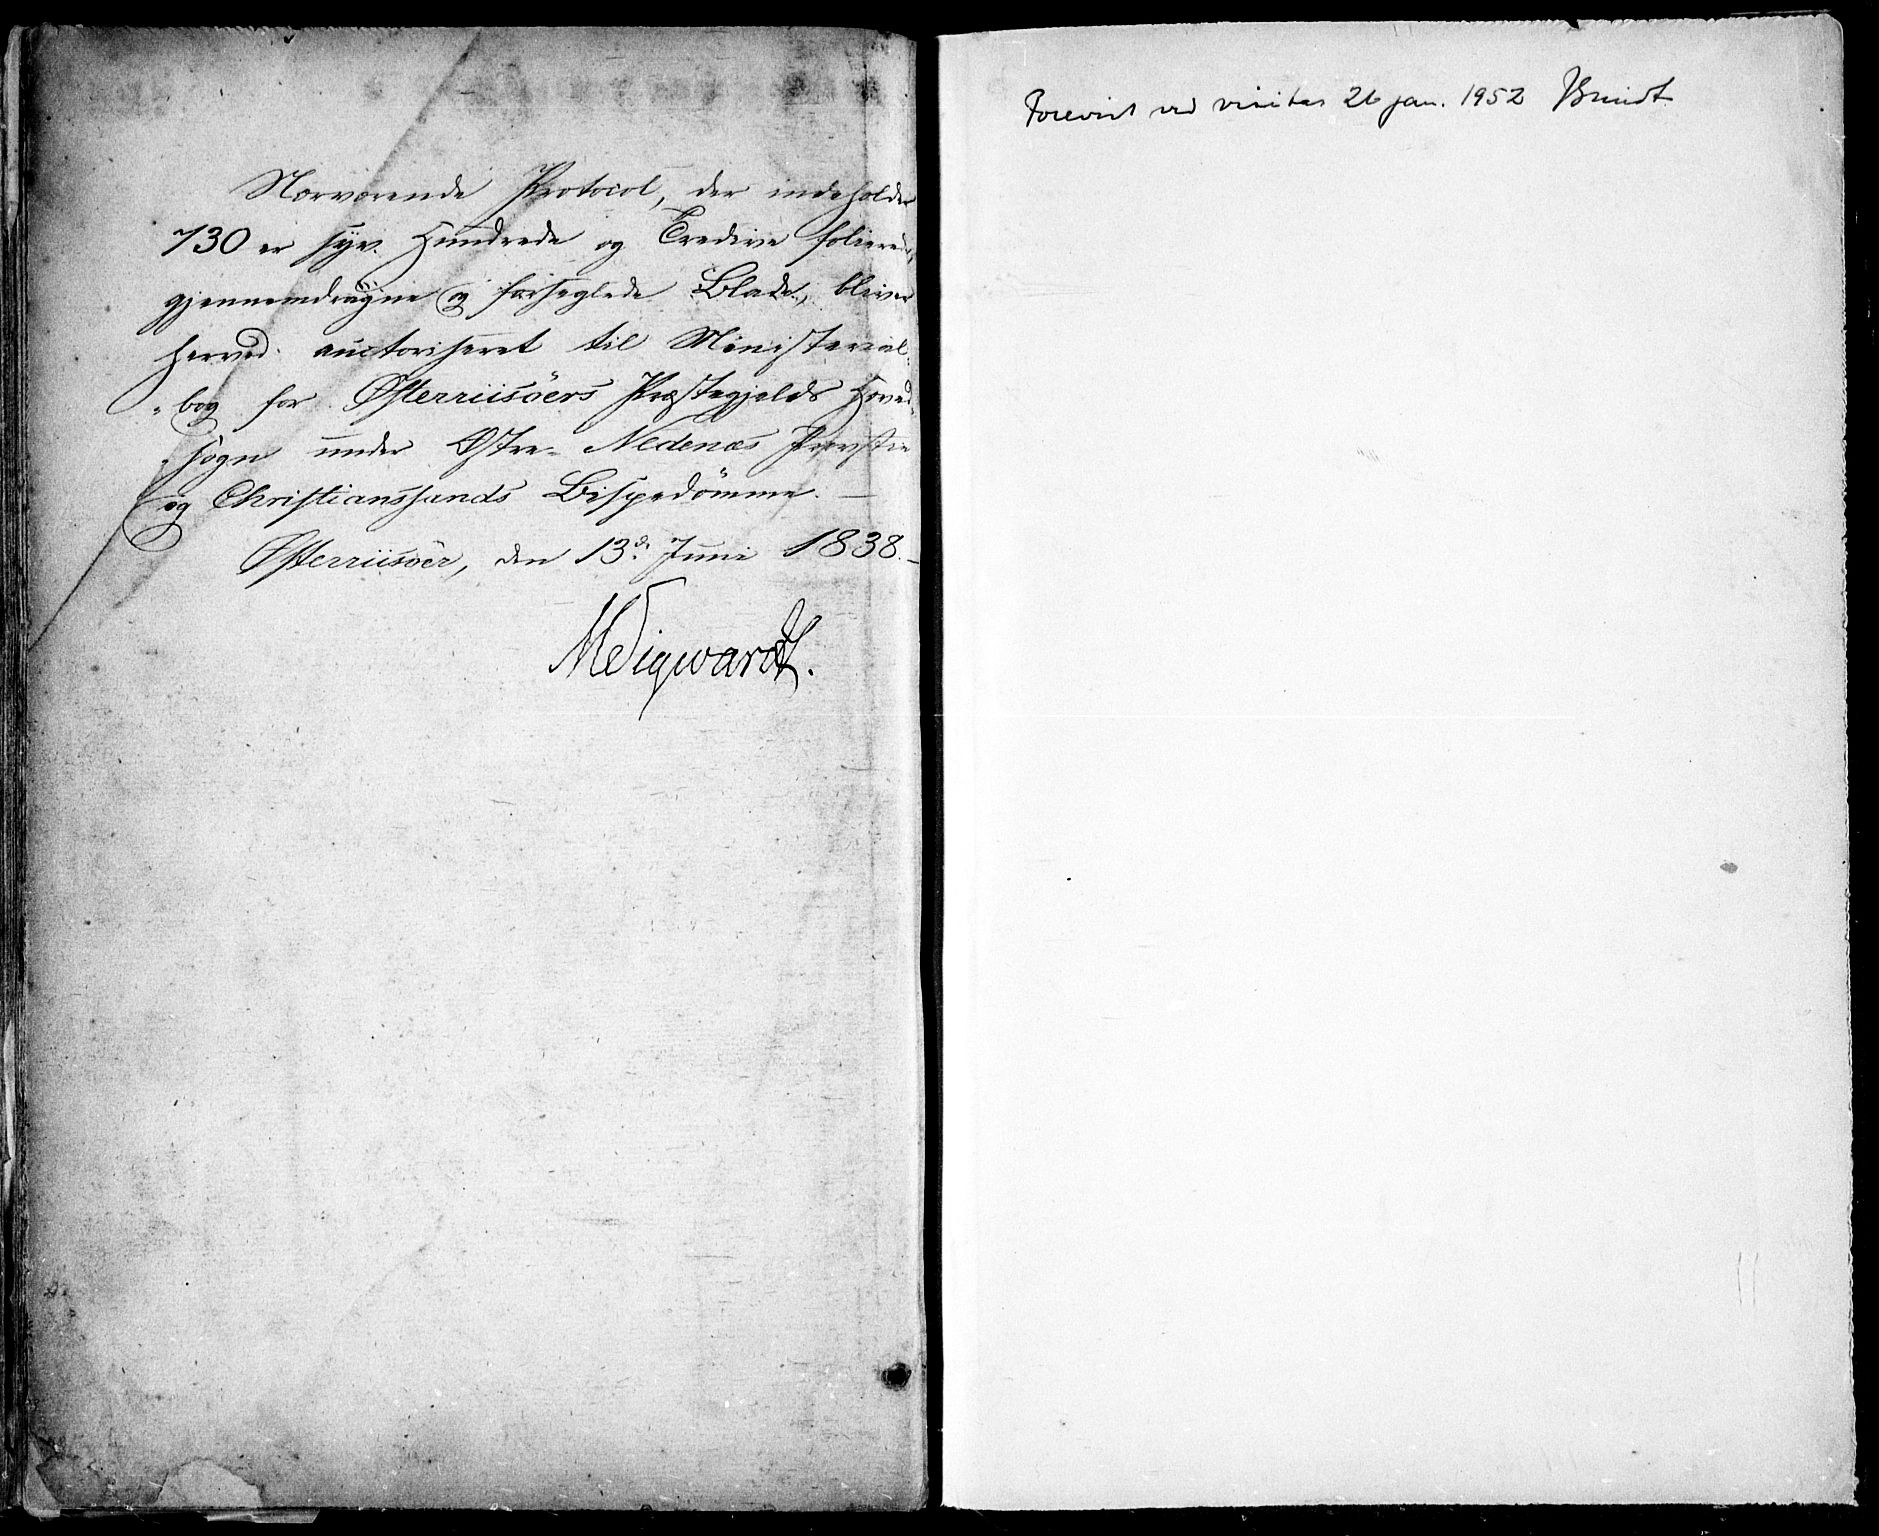 Nærværende Protocol, der indeholder
730 er syv Hundrede og Tredive folierede,
gjennemdragne og forseglede Blade, bliver
herved auctoriseret til Ministerial-
-bog for Østerriisöers Præstegjelds Hoved-
-sogn under Østre Nedenæs Provstie
og Christianssands Bispedömme. —
Østerriisöer, den 13de Juni 1838. —
Forevist ved visitas 26 jan. 1952